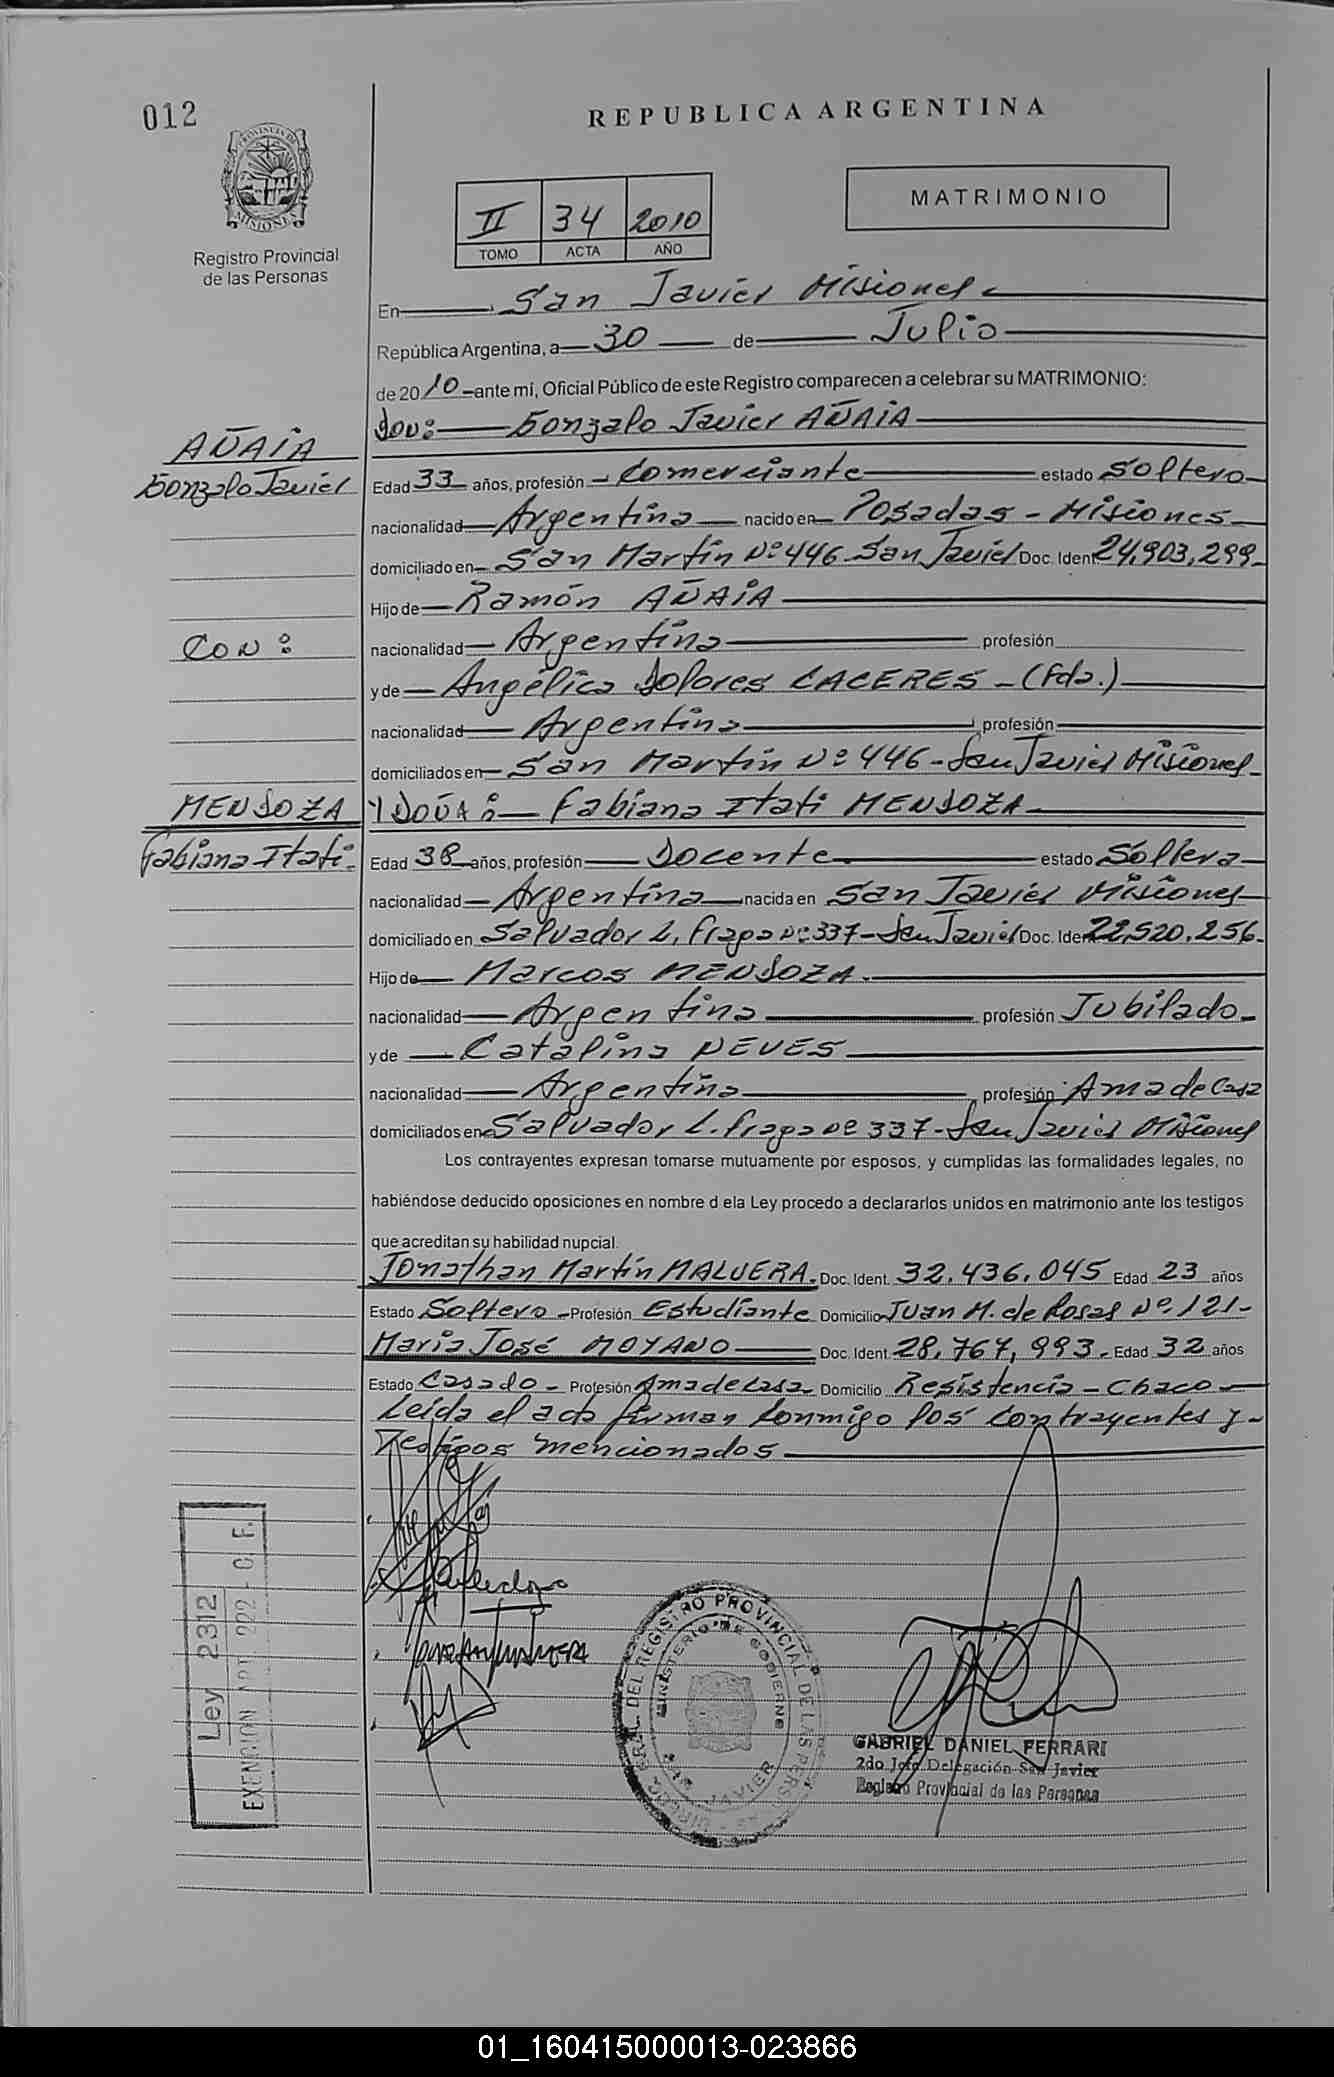 012
REPUBLICA ARGENTINA
PROVINCIA DE MISIONES
Registro Provincial
de las Personas
MATRIMONIO
II 34 2010
TOMO ACTA AÑO
En San Javier Misiones
República Argentina, a 30 de Julio
de 2010 ante mí, Oficial Público de este Registro comparecen a celebrar su MATRIMONIO:
DON: Gonzalo Javier AÑAIA
AÑAIA
Gonzalo Javier
Edad 33 años, profesión Comerciante estado Soltero
nacionalidad Argentina nacido en Posadas - Misiones
domiciliado en San Martín Nº 446 San Javier Doc. Ident 24,903,299
Hijo de Ramón AÑAIA
CON:
nacionalidad Argentina profesión
y de Angélica Dolores CACERES - (Fda.)
nacionalidad Argentina profesión
domiciliados en San Martín Nº 446 - San Javier Misiones
MENDOZA
Fabiana Itati
Y DOÑA: Fabiana Itati MENDOZA
Edad 38 años, profesión Docente estado Soltera
nacionalidad Argentina nacida en San Javier Misiones
domiciliado en Salvador L. Fraga Nº 337 - San Javier Doc. Iden 22,520,256
Hijo de Marcos MENDOZA
nacionalidad Argentina profesión Jubilado
y de Catalina NEVES
nacionalidad Argentina profesión Ama de Casa
domiciliados en Salvador L. Fraga Nº 337 - San Javier Misiones
Los contrayentes expresan tomarse mutuamente por esposos, y cumplidas las formalidades legales, no
habiéndose deducido oposiciones en nombre d ela Ley procedo a declararlos unidos en matrimonio ante los testigos
que acreditan su habilidad nupcial.
Jonathan Martín MALVERA. Doc. Ident. 32,436,045 Edad 23 años
Estado Soltero Profesión Estudiante Domicilio Juan M. de Rosas Nº 121
Maria José MOYANO Doc. Ident. 28,767,993 Edad 32 años
Estado Casado Profesión Ama de Casa Domicilio Resistencia - Chaco
Leída el acta firman conmigo los contrayentes y
Testigos mencionados
Ley 2312
EXENCION ART. 222 - C. F.
REGISTRO PROVINCIAL DE LAS PERSONAS
MINISTERIO DE GOBIERNO
SAN JAVIER
GABRIEL DANIEL FERRARI
2do Jefe Delegación San Javier
Registro Provincial de las Personas
01_160415000013-023866